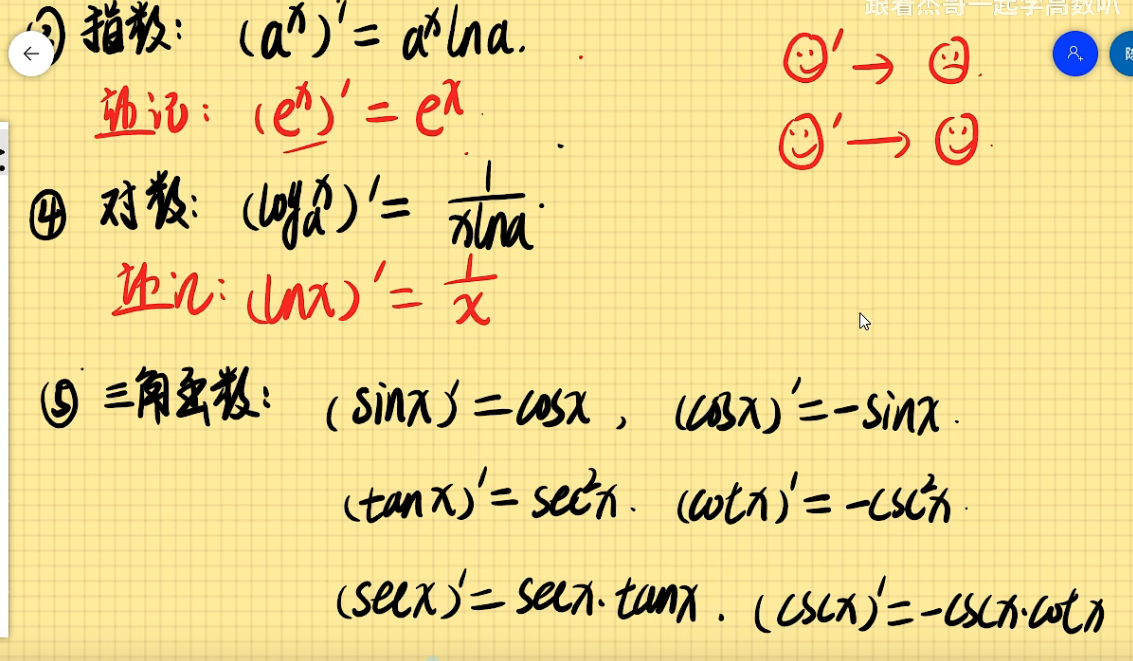 跟着杰哥一起学高数叭
③ 指数: (aˣ)′ = aˣlna.
独记: (eˣ)′ = eˣ
④ 对数: (logₐx)′ = 1/(xlna).
(lnx)′ = 1/x
⑤ 三角函数: (sinx)′ = cosx , (cosx)′ = -sinx.
(tanx)′ = sec²x. (cotx)′ = -csc²x.
(secx)′ = secx·tanx. (cscx)′ = -cscx·cotx
陈